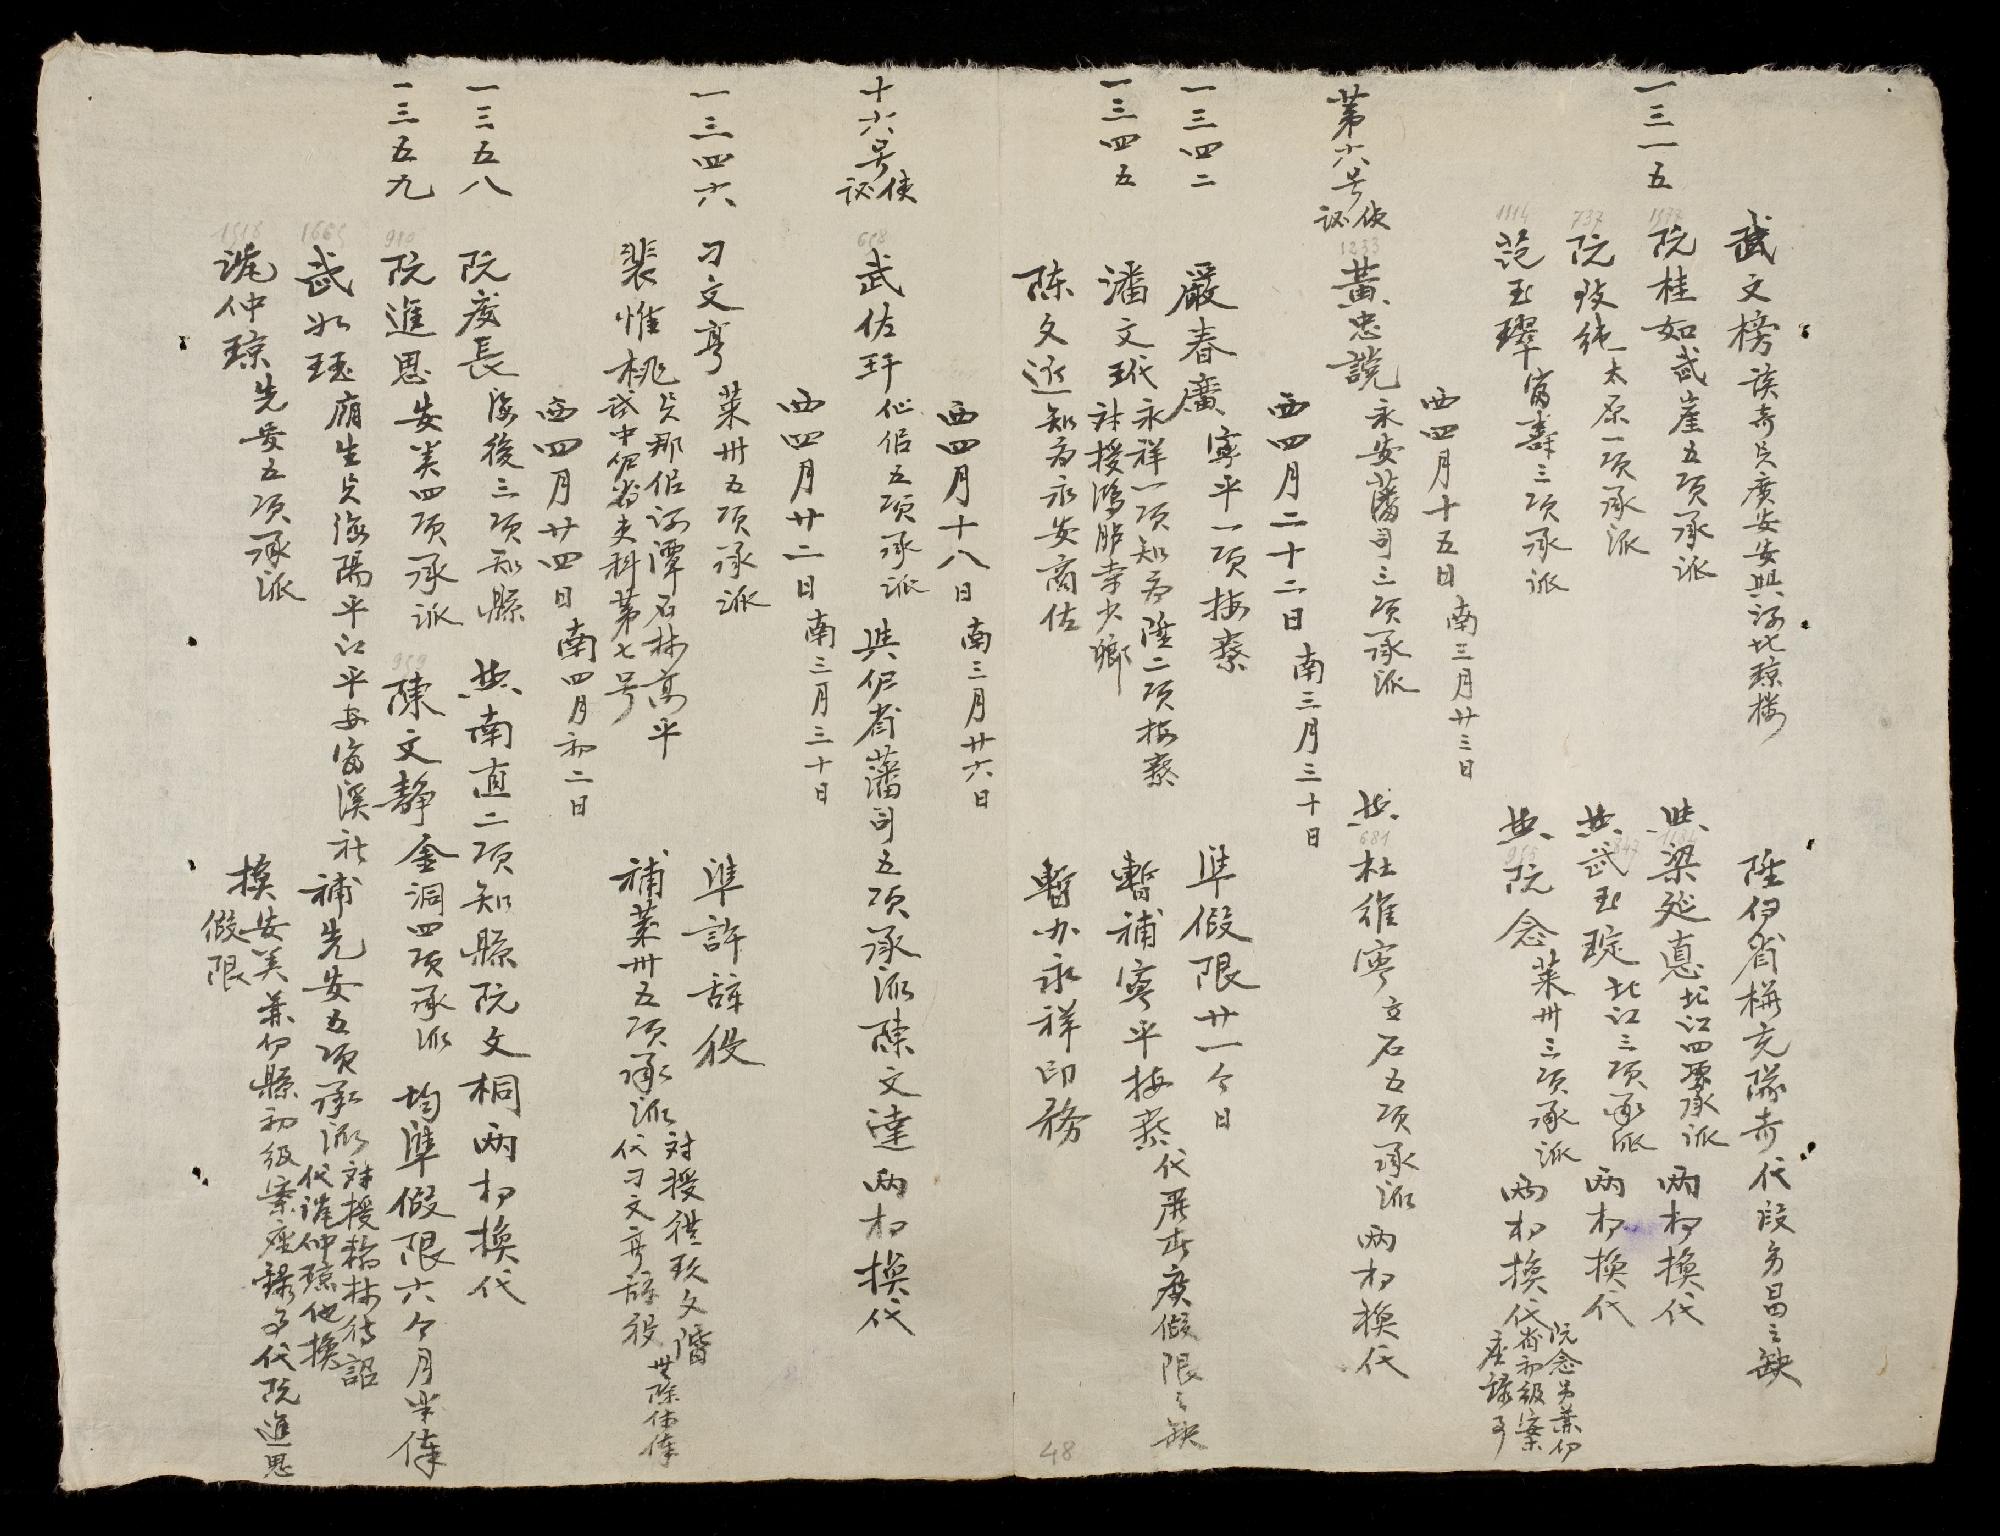 武文榜 該奇 貝廣安安興河北琼楼 陞仍省栟充隊奇代段方昌之缺
一三一五 1577 阮桂如 武崖五項承派 共 梁延惪 北江四項承派 两相換代
737 阮致純 太原一項承派 共 847 武玉琔 北江三項承派 两相換代
1114 范玉璻 富壽三項承派 共 955 阮念 葉州三項承派 两相換代 阮念另兼仍省初級案座録事
西四月十五日 南三月廿三日
第六号 使 諮 1233 黃忠説 永安藩司三項承派 共 681 杜維寧 立石五項承派 两相換代
西四月二十二日 南三月三十日
一三四二 嚴春廣 寧平一項按察 準假限廿一个日
一三四五 潘文玳 永祥一項知府陞二項按察 対授鴻胪寺少卿 暫補寧平按察 代 廣假限之缺
陈文近 知府永安商佐 暫办永祥印務
48
西四月十八日 南三月廿六日
十六号 使 諮 658 武佐玶 仙侣五項承派 共 仍省藩司五項承派 陳文達 两相換代
西四月廿二日 南三月三十日
一三四六 刁文亨 葉州五項承派 準許辞役
裴惟桃 貝那侣河潭石林高平 試中仍省吏科第七号 補葉州五項承派 対授從玖文階 代刁文亨辞役
西四月廿四日 南四月初二日
一三五八 阮废長 海後三項知縣 共 南直二項知縣 阮文桐 两相換代
一三五九 910 阮進思 安美四項承派 959 陳文静 金洞四項承派 均準假限六个月半俸
1665 武如珏 廂生貝海陽平江平安富溪社 補先安五項承派 対授翰林待詔 代謝仲琼他換
1518 謝仲琼 先安五項承派 換安美兼仍縣初級案座録事代阮進思假限